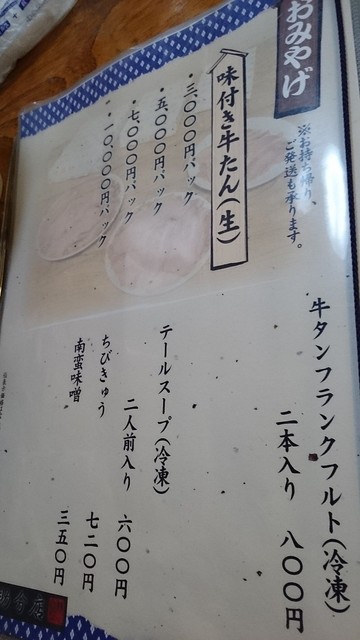 おみやげ
※お持ち帰り、
ご発送も承ります。
味付き牛たん(生)
・三、〇〇〇円パック
・五、〇〇〇円パック
・七、〇〇〇円パック
・一〇、〇〇〇円パック
牛タンフランクフルト(冷凍)
二本入り 八〇〇円
テールスープ(冷凍)
二人前入り 六〇〇円
ちびきゅう 七二〇円
南蛮味噌 三五〇円